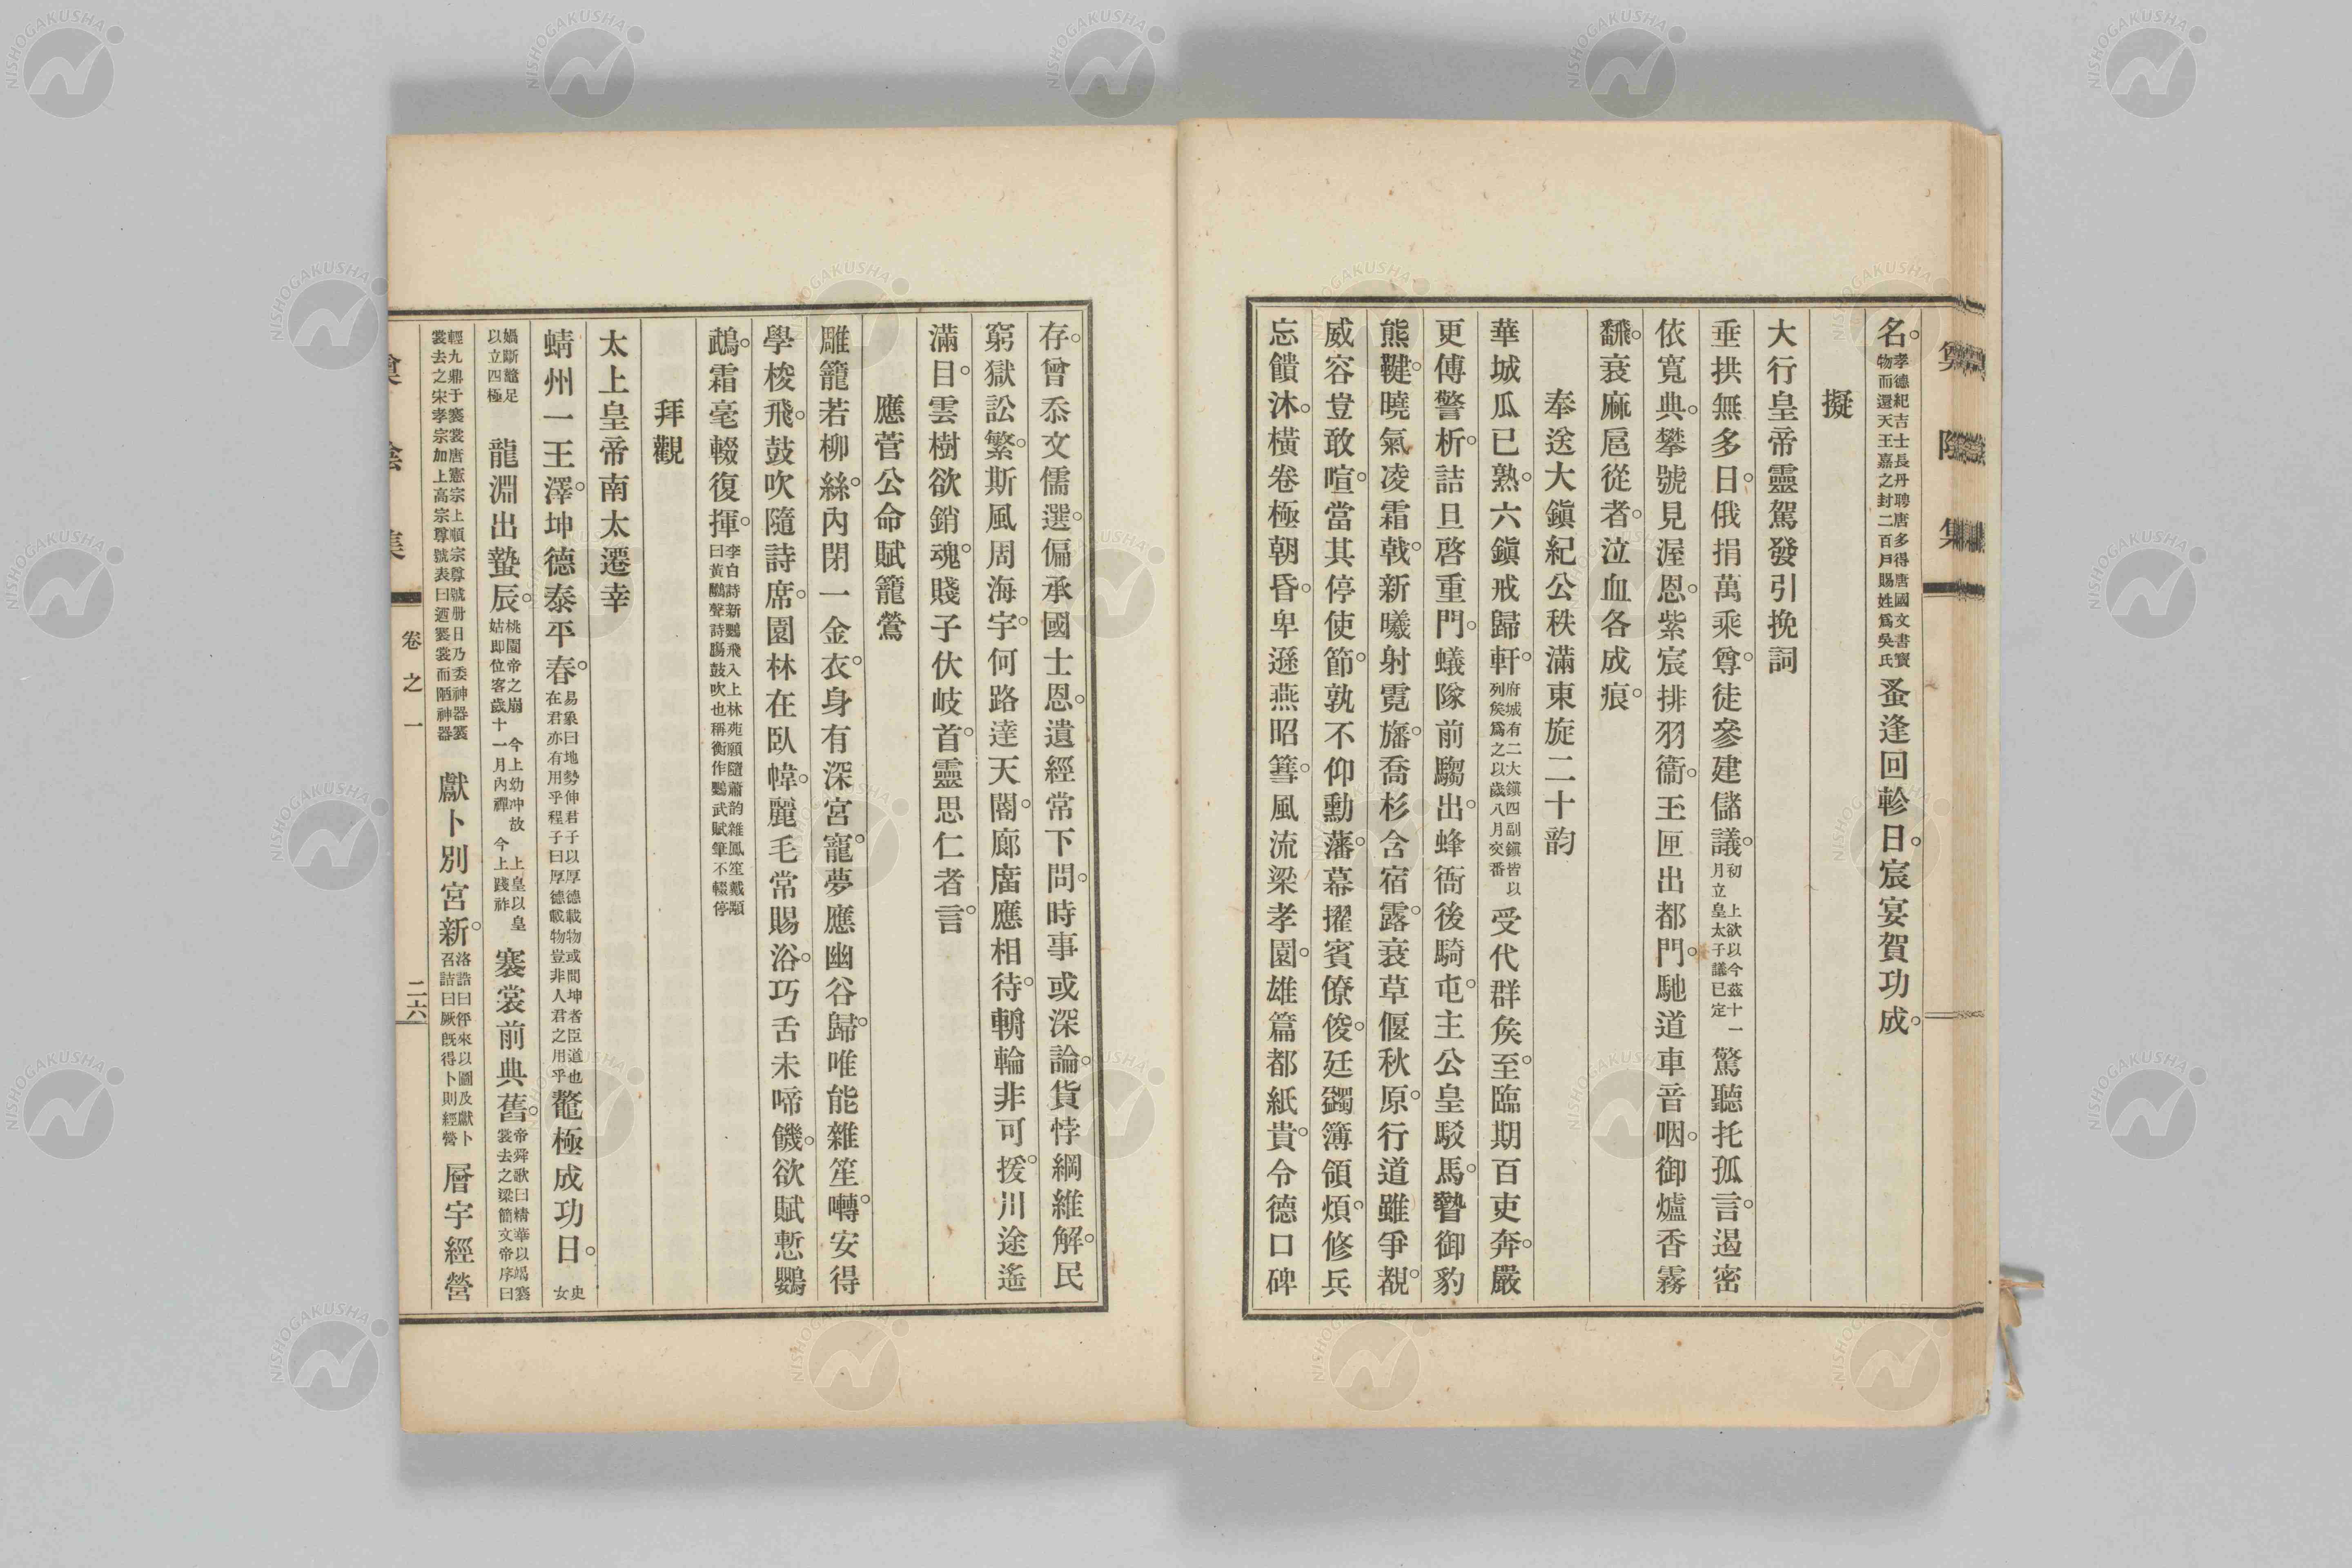 名。孝德紀吉士長丹聘唐多得唐國文書寶物而還天王嘉之封二百戶賜姓爲吳氏蚤逢回軫日。宸宴賀功成。
擬
大行皇帝靈駕發引挽詞
垂拱無多日。俄捐萬乘尊。徒參建儲議。初上欲以今茲十一月立皇太子議已定驚聽托孤言。遏密
依寬典。攀號見渥恩。紫宸排羽衞。玉匣出都門。馳道車音咽。御爐香霧
飜。衰麻扈從者。泣血各成痕。
奉送大鎭紀公秩滿東旋二十韵
華城瓜已熟。六鎭戒歸軒。府城有二大鎭四副鎭皆以列矦爲之以歲八月交番受代群矦至。臨期百吏奔。嚴
更傅警析。詰旦啓重門。蟻隊前騶出。蜂衙後騎屯。主公皇駁馬。贊御豹
熊鞬。曉氣凌霜戟。新曦射霓旛。喬杉含宿露。衰草偃秋原。行道雖爭覩。
威容豈敢喧。當其停使節。孰不仰勳藩。幕擢賓僚俊。廷蠲簿領煩。修兵
忘饋沐。橫卷極朝昏。卑遜燕昭篲。風流梁孝園。雄篇都紙貴。令德口碑
存。曾忝文儒選。偏承國士恩。遺經常下問。時事或深論。貨悖綱維解。民
窮獄訟繁。斯風周海宇。何路達天閽。廊廣應相待。輶輪非可援。川途遙
滿目。雲樹欲銷魂。賤子伏岐首。靈思仁者言。
應菅公命賦籠鶯
雕籠若柳絲。內閉一金衣。身有深宮寵。夢應幽谷歸。唯能雜笙囀。安得
學梭飛。鼓吹隨詩席。園林在臥幃。麗毛常賜浴。巧舌未啼饑。欲賦慙鸚
鵡。霜毫輟復揮。李白詩新鸚飛入上林苑願隨蕭韵雜鳳笙戴顒曰黃鸝聲詩腸鼓吹也稱衡作鸚武賦筆不輟停
拜觀
太上皇帝南太遷幸
蜻州一王澤。坤德泰平春。易象曰地勢伸君子以厚德載物或問坤者臣道也在君亦有用乎程子曰厚德載物豈非人君之用乎鼇極成功日。史女
媧斷鼇足以立四極龍淵出蟄辰。桃園帝之崩今上幼冲故上皇以皇姑即位客歲十一月內禪今上踐祚褰裳前典舊。帝舜歌曰精華以竭褰裳去之梁簡文帝序曰
輕九鼎于褰裳唐憲宗上順宗尊號册曰乃委神器褰裳去之宋孝宗加上高宗尊號表曰迺褰裳而陋神器獻卜別宮新。洛誥曰伻來以圖及獻卜召誥曰厥旣得卜則經營層宇經營
卷之一
二六